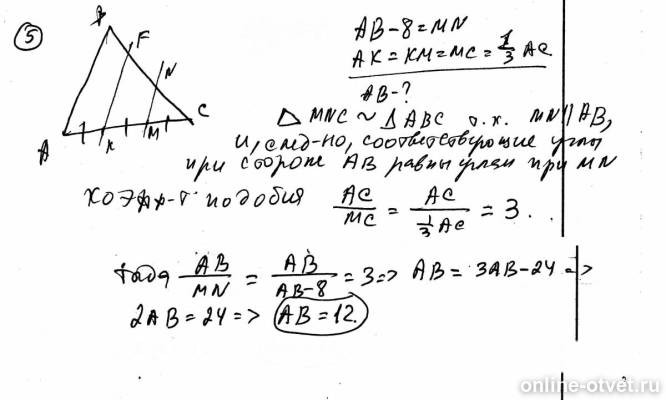 5
B
F
N
A
K
M
C
AB-8=MN
AK=KM=MC=1/3 AC
AB-?
△ MNC ~ △ABC т.к. MN∥AB,
и, след-но, соответствующие углы
при стороне AB равны углам при MN
коэфф-т подобия AC/MC = AC/(1/3 AC) = 3 . .
тогда AB/MN = AB/(AB-8) = 3 => AB = 3AB-24 =>
2AB=24 => AB=12.
online-otvet.ru